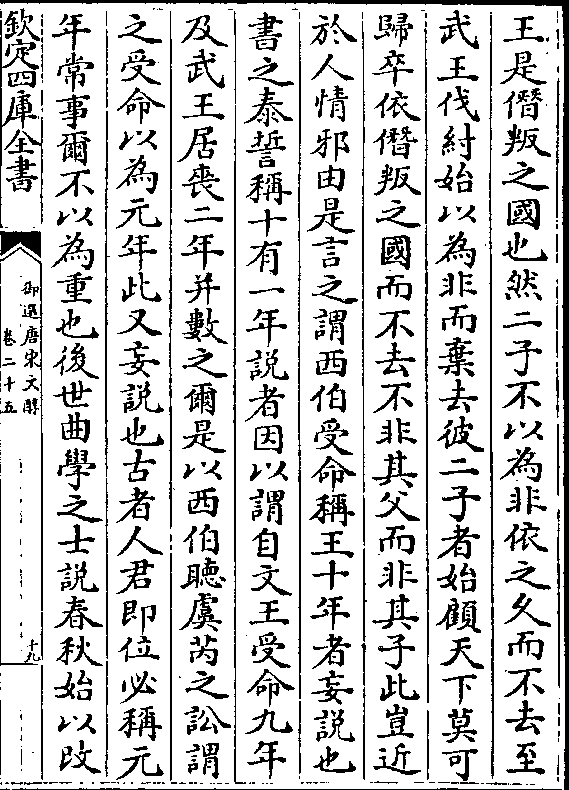 王是僭叛之國也然二子不以為非依之久而不去至
武王伐紂始以為非而棄去彼二子者始顧天下莫可
歸卒依僭叛之國而不去不非其父而非其子此豈近
於人情邪由是言之謂西伯受命稱王十年者妄說也
書之泰誓稱十有一年說者因以謂自文王受命九年
及武王居喪二年并數之爾是以西伯聽虞芮之訟謂
之受命以為元年此又妄說也古者人君即位必稱元
年常事爾不以為重也後世曲學之士說春秋始以改
欽定四庫全書
御選唐宋文醇
卷二十五
十九